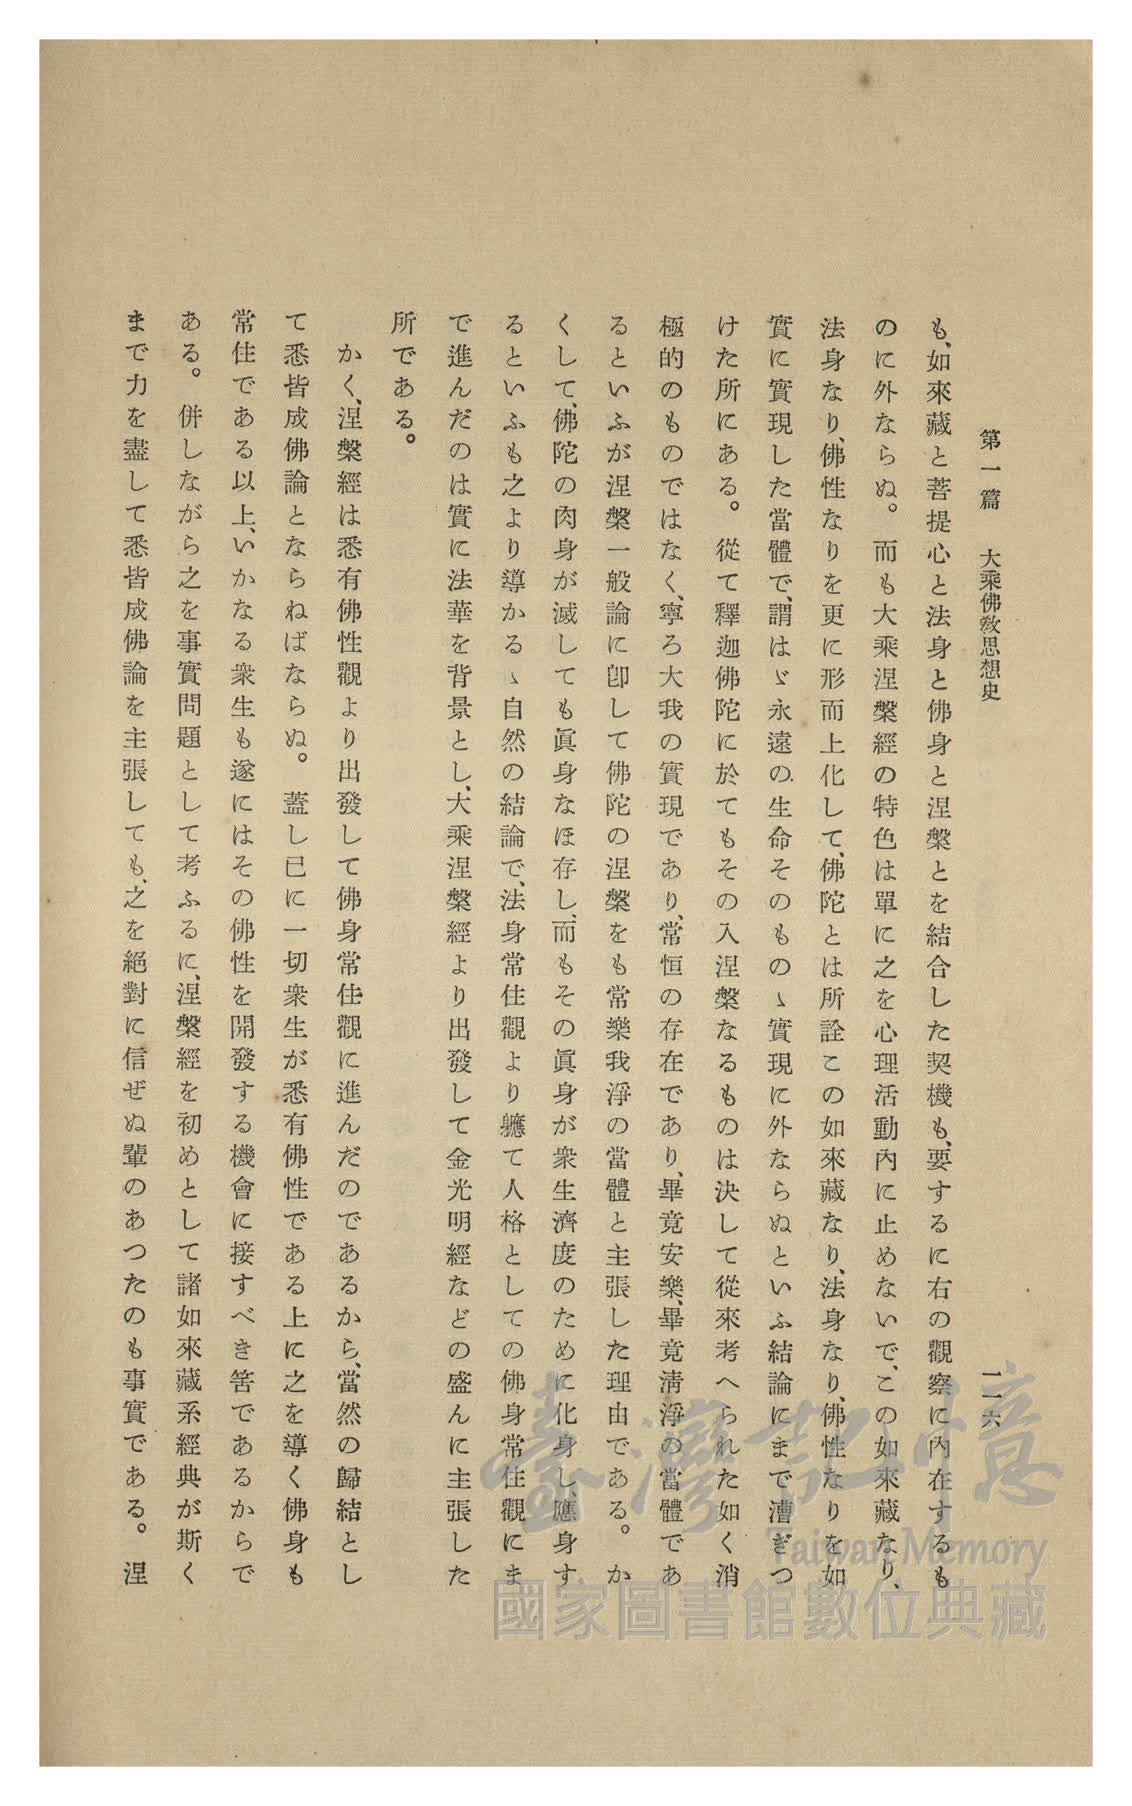 第一篇　大乘佛敎思想史　一一六
も、如來藏と菩提心と法身と佛身と涅槃とを結合した契機も、要するに右の觀察に內在するも
のに外ならぬ。而も大乘涅槃經の特色は單に之を心理活動內に止めないで、この如來藏なり、
法身なり、佛性なりを更に形而上化して、佛陀とは所詮この如來藏なり、法身なり、佛性なりを如
實に實現した當體で、謂はゞ永遠の生命そのものゝ實現に外ならぬといふ結論にまで漕ぎつ
けた所にある。從て釋迦佛陀に於てもその入涅槃なるものは決して從來考へられた如く消
極的のものではなく、寧ろ大我の實現であり、常恒の存在であり、畢竟安樂、畢竟淸淨の當體であ
るといふが涅槃一般論に卽して佛陀の涅槃をも常樂我淨の當體と主張した理由である。か
くして、佛陀の肉身が滅しても眞身なほ存し、而もその眞身が衆生濟度のために化身し、應身す
るといふも之より導かるゝ自然の結論で、法身常住觀より軈て人格としての佛身常住觀にま
で進んだのは實に法華を背景とし、大乘涅槃經より出發して金光明經などの盛んに主張した
所である。
かく、涅槃經は悉有佛性觀より出發して佛身常住觀に進んだのであるから、當然の歸結とし
て悉皆成佛論とならねばならぬ。蓋し已に一切衆生が悉有佛性である上に之を導く佛身も
常住である以上、いかなる衆生も遂にはその佛性を開發する機會に接すべき筈であるからで
ある。併しながら之を事實問題として考ふるに、涅槃經を初めとして諸如來藏系經典が斯く
まで力を盡して悉皆成佛論を主張しても、之を絕對に信ぜぬ輩のあつたのも事實である。涅
臺灣記憶
Taiwan Memory
國家圖書館數位典藏